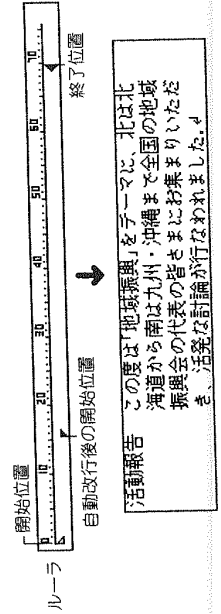 開始位置
ルーラ
0 10 20 30 40 50 60 70
自動改行後の開始位置
終了位置
活動報告 この度は「地域振興」をテーマに、北は北
海道から南は九州・沖縄まで全国の地域
振興会の代表の皆さまにお集まりいただ
き、活発な討論が行なわれました。↲